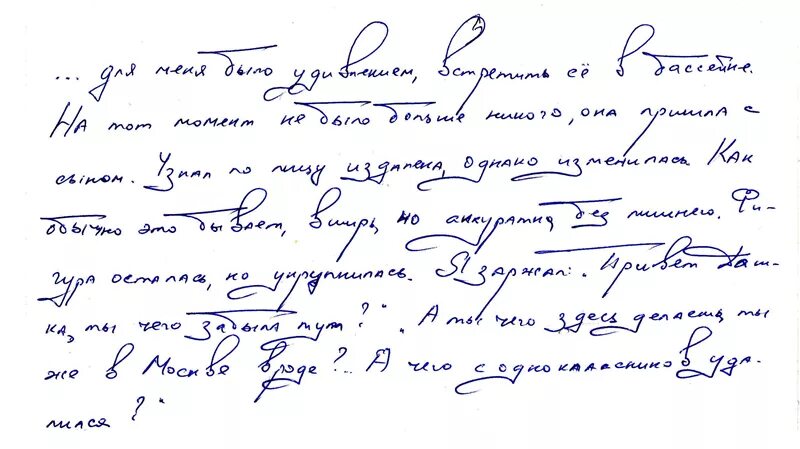 ... для меня было удивлением, встретить её в бассейне.
На тот момент не было больше никого, она пришла с
сыном. Узнал по лицу издалека, однако изменилась. Как
обычно это бывает, вширь, но аккуратно, без лишнего. Фи-
гура осталась, но укрупнилась. Я заржал: „Привет Даш-
ка, ты чего забыла тут?" „А ты чего здесь делаешь, ты
же в Москве вроде?.. А чего с одноклассников уда-
лился?"